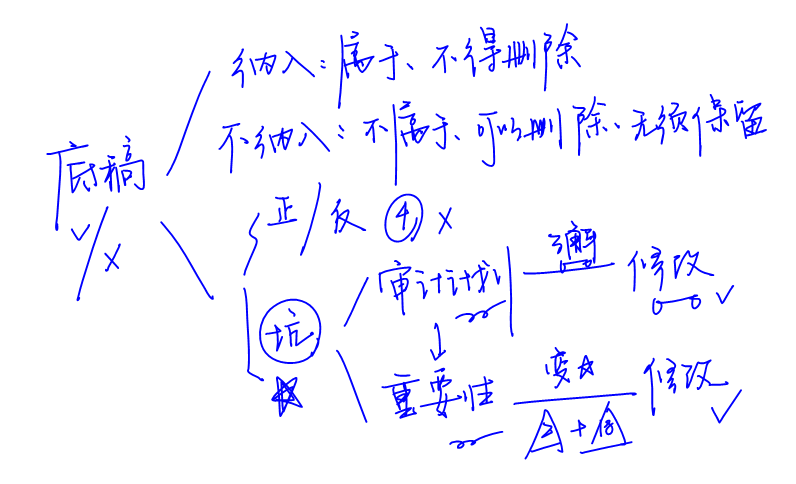 纳入：属于、不得删除
不纳入：不属于、可以删除、无须保留
底稿
✓/×
正/反 ④ ×
审计计划 修改 ✓
坑
重要性 变 修改 ✓